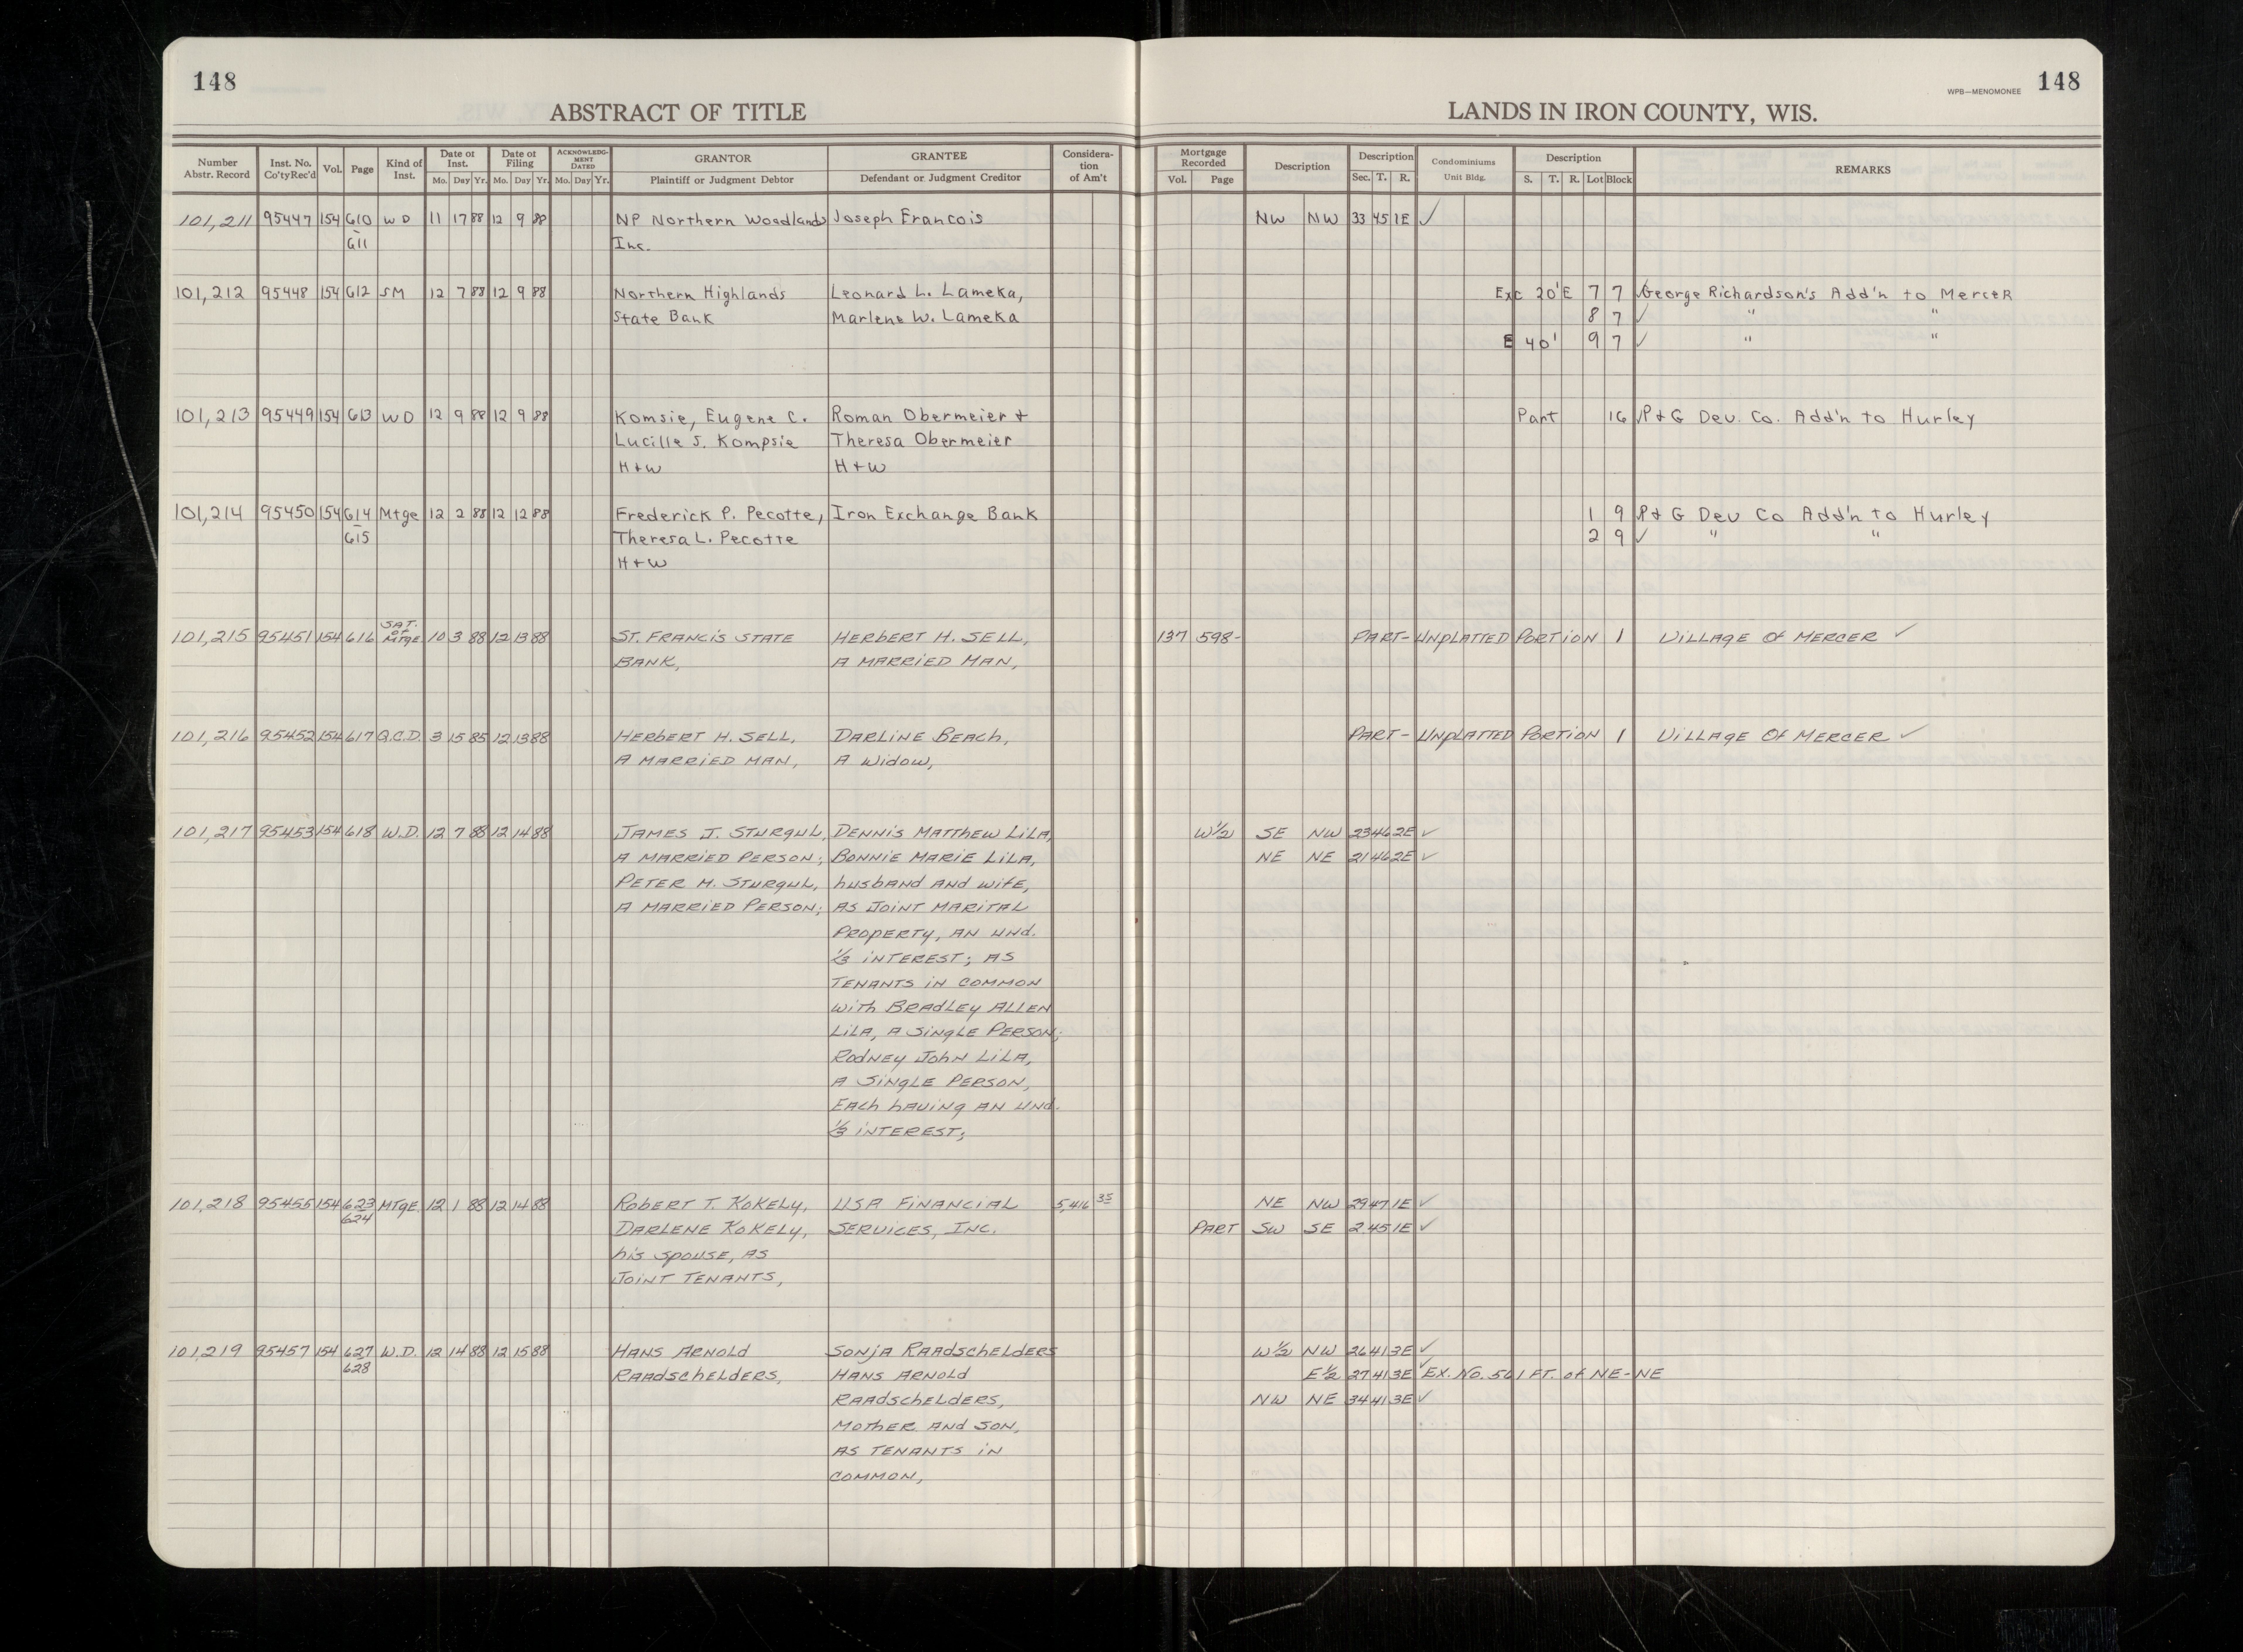 148
148
WPB—MENOMONEE
ABSTRACT OF TITLE
LANDS IN IRON COUNTY, WIS.
Number Abstr. Record Inst. No. Co'tyRec'd Vol. Page Kind of Inst. Date of Inst. Mo. Day Yr. Date of Filing Mo. Day Yr. ACKNOWLEDGMENT DATED Mo. Day Yr. GRANTOR Plaintiff or Judgment Debtor GRANTEE Defendant or Judgment Creditor Consideration of Am't Mortgage Recorded Vol. Page Description Description Sec. T. R. Condominiums Unit Bldg. Description S. T. R. Lot Block REMARKS
101,211 95447 154 610 WD 11 17 88 12 9 88 NP Northern Woodlands Joseph Francois NW NW 33 45 1E ✓
- 611 Inc.
101,212 95448 154 612 SM 12 7 88 12 9 88 Northern Highlands Leonard L. Lameka, Exc 20' E 7 7 ✓ George Richardson's Add'n to Mercer
State Bank Marlene W. Lameka 8 7 ✓ " "
E 40' 9 7 ✓ " "
101,213 95449 154 613 WD 12 9 88 12 9 88 Komsie, Eugene C. Roman Obermeier + Part 16 ✓ P+G Dev. Co. Add'n to Hurley
Lucille S. Kompsie Theresa Obermeier
H+W H+W
101,214 95450 154 614 Mtge 12 2 88 12 12 88 Frederick P. Pecotte, Iron Exchange Bank 1 9 ✓ P+G Dev Co Add'n to Hurley
- 615 Theresa L. Pecotte 2 9 ✓ " "
H+W
101,215 95451 154 616 SAT. OF MTGE 10 3 88 12 13 88 ST. FRANCIS STATE HERBERT H. SELL, 137 598- PART- UNPLATTED PORTION 1 VILLAGE OF MERCER ✓
BANK, A MARRIED MAN,
101,216 95452 154 617 Q.C.D. 3 15 85 12 13 88 HERBERT H. SELL, DARLINE BEACH, PART- UNPLATTED PORTION 1 VILLAGE OF MERCER ✓
A MARRIED MAN, A WIDOW,
101,217 95453 154 618 W.D. 12 7 88 12 14 88 JAMES J. STURGUL, DENNIS MATTHEW LILA, W½ SE NW 23 46 2E ✓
A MARRIED PERSON; BONNIE MARIE LILA, NE NE 21 46 2E ✓
PETER H. STURGUL, husband AND wife,
A MARRIED PERSON; AS JOINT MARITAL
PROPERTY, AN Und.
⅓ INTEREST; AS
TENANTS IN COMMON
with BRADLEY ALLEN
LILA, A SINGLE PERSON;
RODNEY JOHN LILA,
A SINGLE PERSON,
EACH HAVING AN Und.
⅓ INTEREST;
101,218 95455 154 623 MTGE. 12 1 88 12 14 88 ROBERT T. KOKELY, USA FINANCIAL 5,416 35 NE NW 29 47 1E ✓
624 DARLENE KOKELY, SERVICES, INC. PART SW SE 2 45 1E ✓
his SPOUSE, AS
JOINT TENANTS,
101,219 95457 154 627 W.D. 12 14 88 12 15 88 HANS ARNOLD SONJA RAADSCHELDERS W½ NW 26 41 3E ✓
628 RAADSCHELDERS, HANS ARNOLD E½ 27 41 3E ✓ EX. NO. 501 FT. OF NE-NE
RAADSCHELDERS, NW NE 34 41 3E ✓
MOTHER AND SON,
AS TENANTS IN
COMMON,